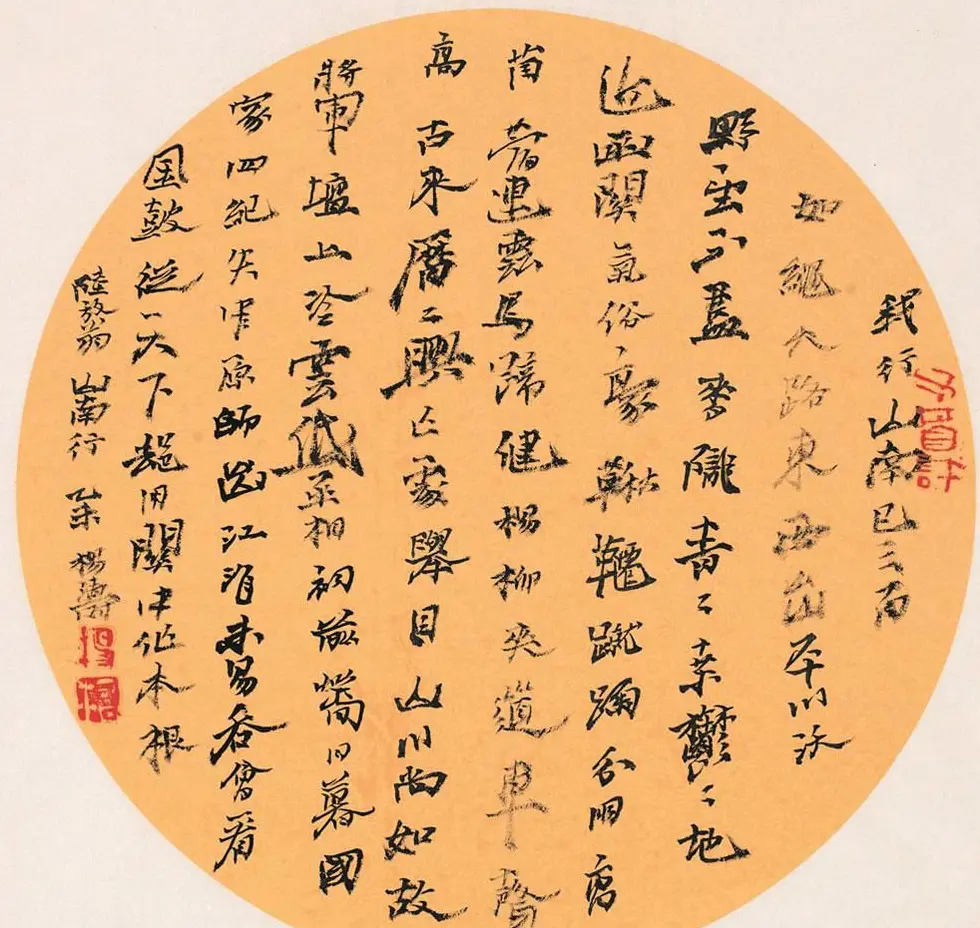 我行山南已三百
如繩大路東西出平川沃
野望不盡麥隴青〻桑鬱〻地
近函關氣俗豪鞦韆蹴踘分朋曹
苜蓿連雲馬蹄健楊柳夾道車聲
高古來歷〻興亡處舉目山川尚如故
將軍壇上冷雲低丞相祠前日暮國
家四紀失中原師出江淮未易吞會看
金鼓從天下起用關中作本根
陸放翁 山南行 乙未 楊濤